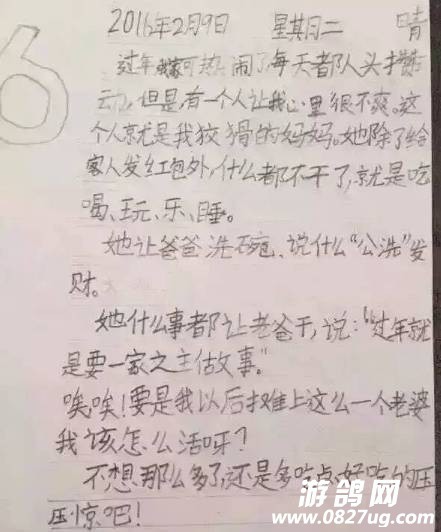 2016年2月9日 星期二 晴
过年我家可热闹了,每天都队头攒
动,但是有一个人让我心里很不爽。这
个人就是我狡猾的妈妈。她除了给
客人发红包外,什么都不干了,就是吃
喝、玩、乐、睡。
她让爸爸洗碗、说什么“公洗”发
财。
她什么事都让老爸干,说:“过年就
是要一家之主做事。”
唉唉!要是我以后摊上这么一个老婆
我该怎么活呀?
不想那么多了,还是多吃点好吃的压
压惊吧!
6
游鸽网
www.0827ug.com